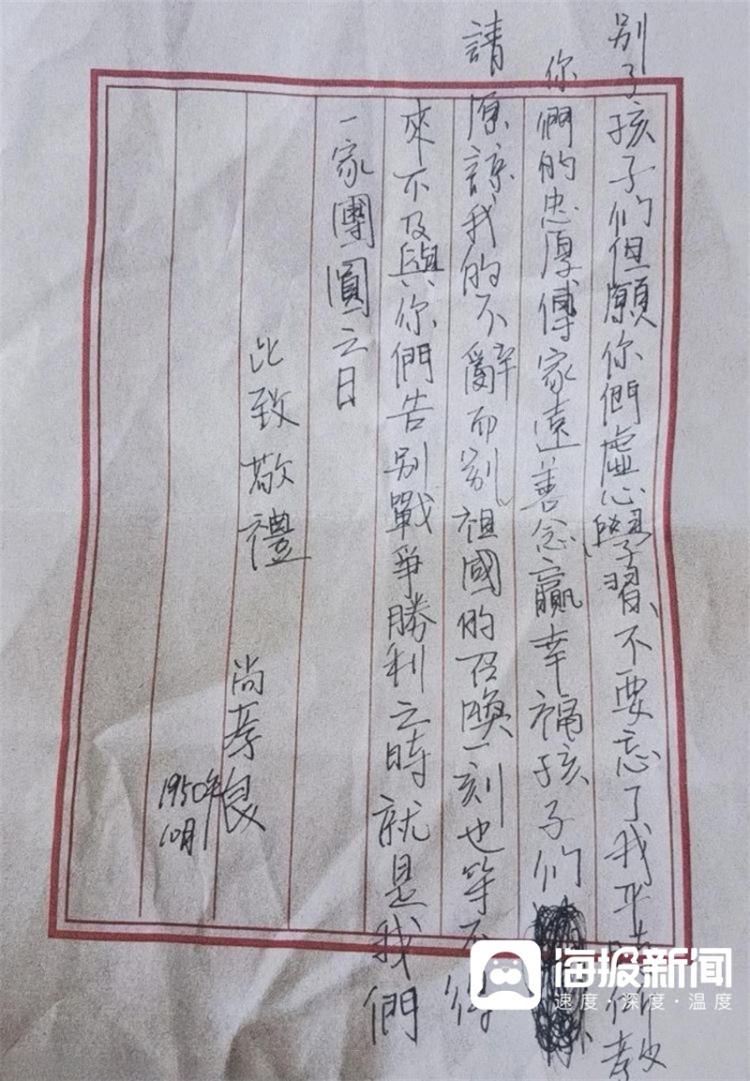 别了孩子们但願你們虚心學習不要忘了我平
教
你們的忠厚傳家遠善念贏幸福孩子们
請原諒我的不辭而别祖國的召唤一刻也等不得
來不及與你們告别戰爭勝利之時就是我們
一家團圓之日
此致敬禮
尚孝良
1950年
10月
海报新闻
速度·深度·温度